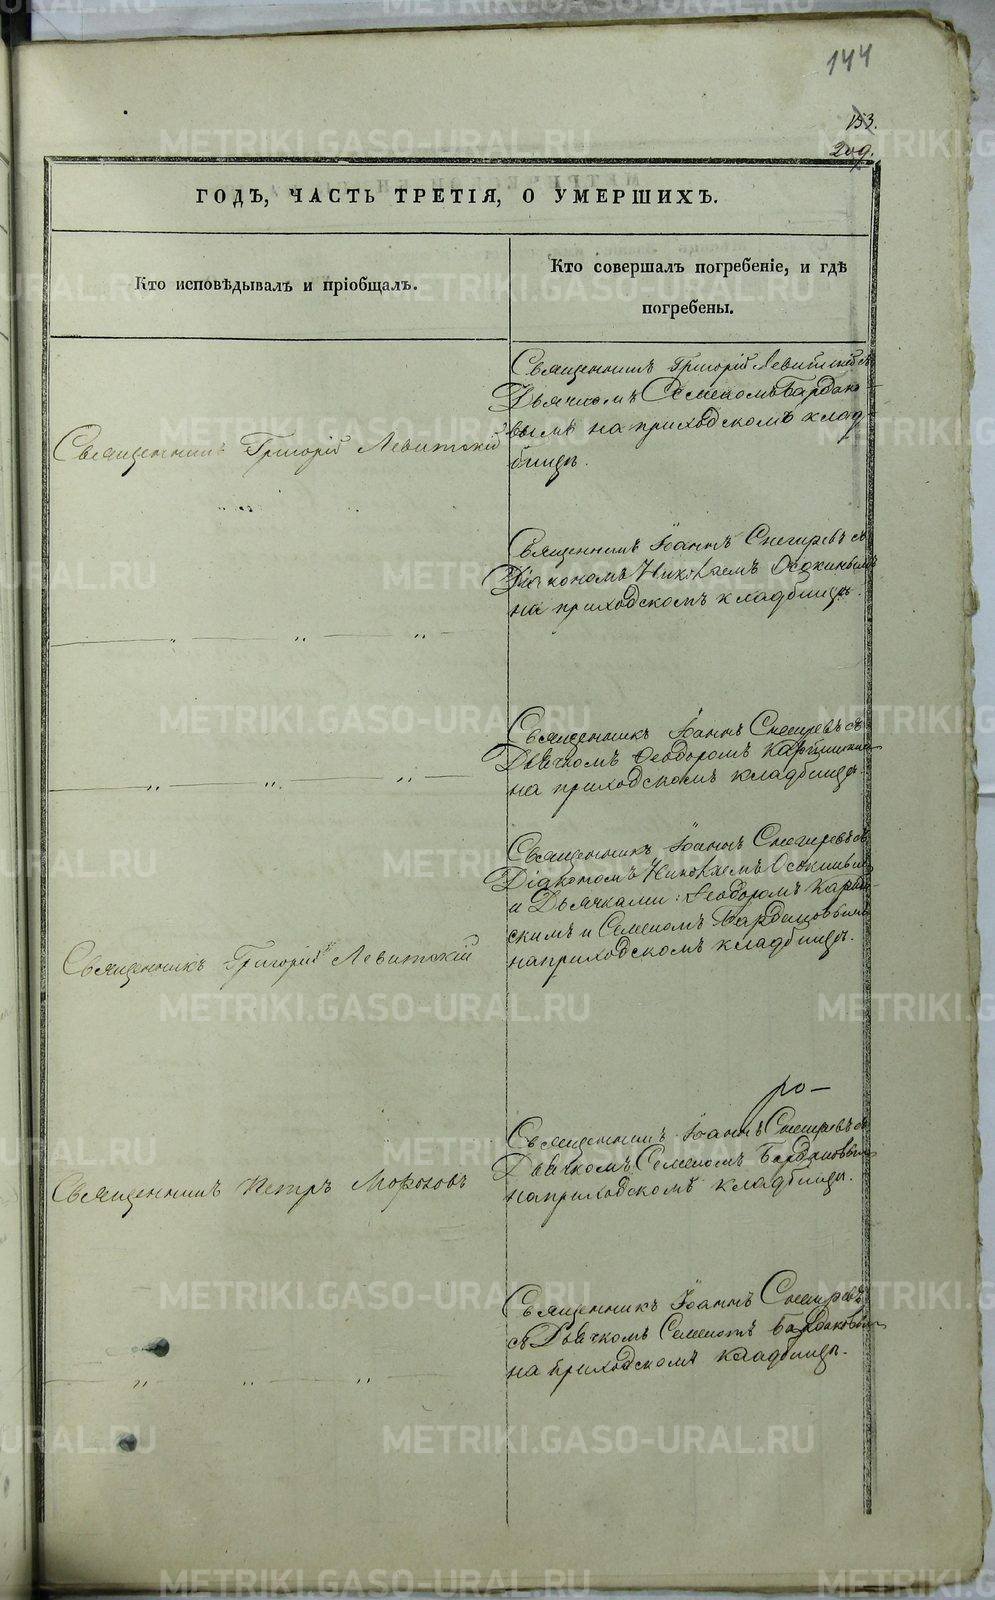 144
153.
209.
ГОДЪ, ЧАСТЬ ТРЕТІЯ, О УМЕРШИХЪ.
Кто исповѣдывалъ и пріобщалъ.
Кто совершалъ погребеніе, и гдѣ
погребены.
Священникъ Григорій Левитскій
Священникъ Григорій Левитскій съ
Дьячкомъ Семеномъ Бардако-
вымъ на приходскомъ клад-
бищѣ.
Священникъ Іоаннъ Снегиревъ съ
Діакономъ Николаемъ Осокинымъ
на приходскомъ кладбищѣ.
Священникъ Іоаннъ Снегиревъ съ
Дьячкомъ Ѳеодоромъ
на приходскомъ кладбищѣ.
Священникъ Григорій Левитскій
Священникъ Іоаннъ Снегиревъ съ
Діакономъ Николаемъ Осокинымъ
и Дьячками: Ѳеодоромъ
скимъ и Семеномъ Бардаковымъ
на приходскомъ кладбищѣ.
Священникъ Петръ Морозовъ
Священникъ Іоаннъ Снегиревъ съ
Дьячкомъ Семеномъ Бардаковымъ
на приходскомъ кладбищѣ.
Священникъ Іоаннъ Снегиревъ
съ Дьячкомъ Семеномъ Бардаковымъ
на приходскомъ кладбищѣ.
METRIKI.GASO-URAL.RU